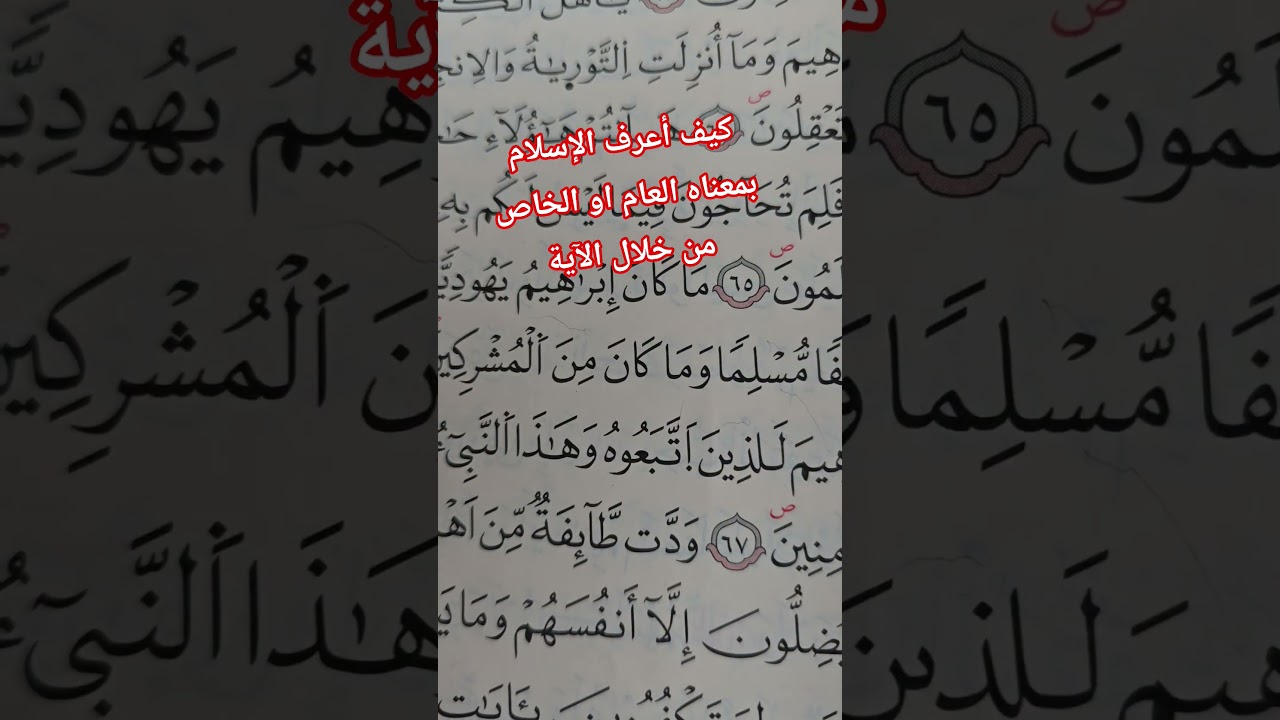 كيف أعرف الإسلام
بمعناه العام او الخاص
من خلال الآية
يَٰأَهْلَ
هِيمَ وَمَآ أُنزِلَتِ اِ۬لتَّوْر۪يٰةُ وَالِانجِ
تَعْقِلُونَ هَٰٓؤُلَآءِ حَٰ
فَلِمَ تُحَآجُّونَ فِيمَا لَيْسَ لَكُم بِهِ
لَمُونَ ٦٥ مَا كَانَ إِبْرَٰهِيمُ يَهُودِيّ
فًا مُّسْلِمًا وَمَا كَانَ مِنَ اَ۬لْمُشْرِكِي
هِيمَ لَلذِينَ اَ۪تَّبَعُوهُ وَهَٰذَا اَ۬لنَّبِيٓءُ
مِنِينَ ٦٧ وَدَّت طَّآئِفَةٌ مِّنَ اَهْ
يُضِلُّونَ إِلَّآ أَنفُسَهُمْ وَمَا يَ
تَكْفُرُونَ بِـَٔايَٰتِ